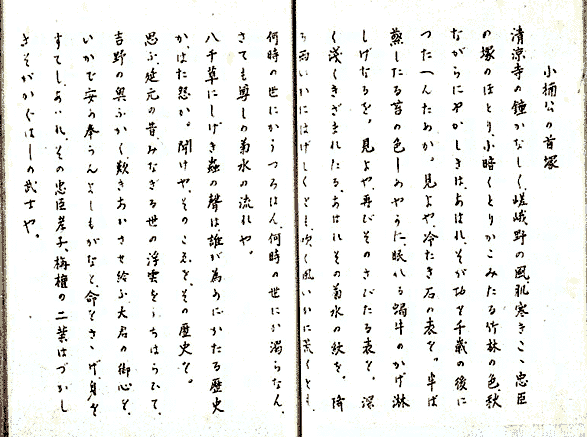 小楠公の首塚
清涼寺の鐘かなしく、嵯峨野の風肌寒きこゝ忠臣
の塚のほとり、小暗くとりかこみたる竹林の色、秋
ながらにやかしきは、あはれ、そが功を千載の後に
つたへんためか。見よや、冷たき石の表を。半ば
蒸したる苔の色しめやかに、眠れる蝸牛のかげ淋
しげなるを。見よや、再びそのさびたる表を。深
く淺くきざまれたる、あはれその菊水の紋を。降
る雨いかにはげしくとも、吹く風いかに荒くとも、
何時の世にかうつろはん、何時の世にか濁らなん、
さても尊しの菊水の流れや。
八千草にしげき蟲の聲は誰が為めにかたる歴史
かはた怨か。聞けや、そのこゑを、その歴史を。
思ふ、延元の昔みなぎる世の浮雲をうちはらひて、
吉野の奥ふかく歎きあかさせ給ふ大君の御心を、
いかで安め奉らんよしもがなと、命をさゝげ身を
すてし、あはれ、その忠臣孝子、栴檀の二葉はづかし
きそがかぐはしの武士や。